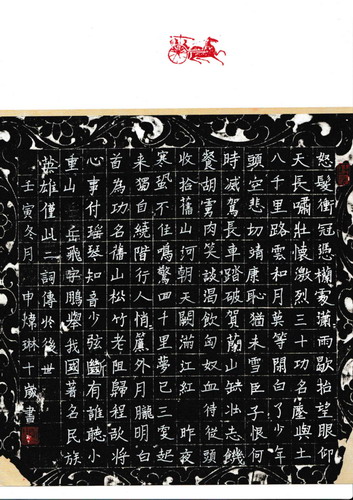 怒髮衝冠憑欄處瀟雨歇抬望眼仰
天長嘯壯懷激烈三十功名塵與土
八千里路雲和月莫等閒白了少年
頭空悲切靖康恥猶未雪臣子恨何
時滅駕長車踏破賀蘭山缺壯志飢
餐胡虜肉笑談渴飲匈奴血待從頭
收拾舊山河朝天闕滿江紅 昨夜
寒蛩不住鳴驚四千里夢已三更起
来獨自繞階行人悄簾外月朧明白
首為功名舊山松竹老阻歸程欲將
心事付瑤琴知音少弦斷有誰聽小
重山 岳飛字鵬舉我國著名民族
英雄僅此二詞傳於後世
壬寅冬月 申煒琳十歲書